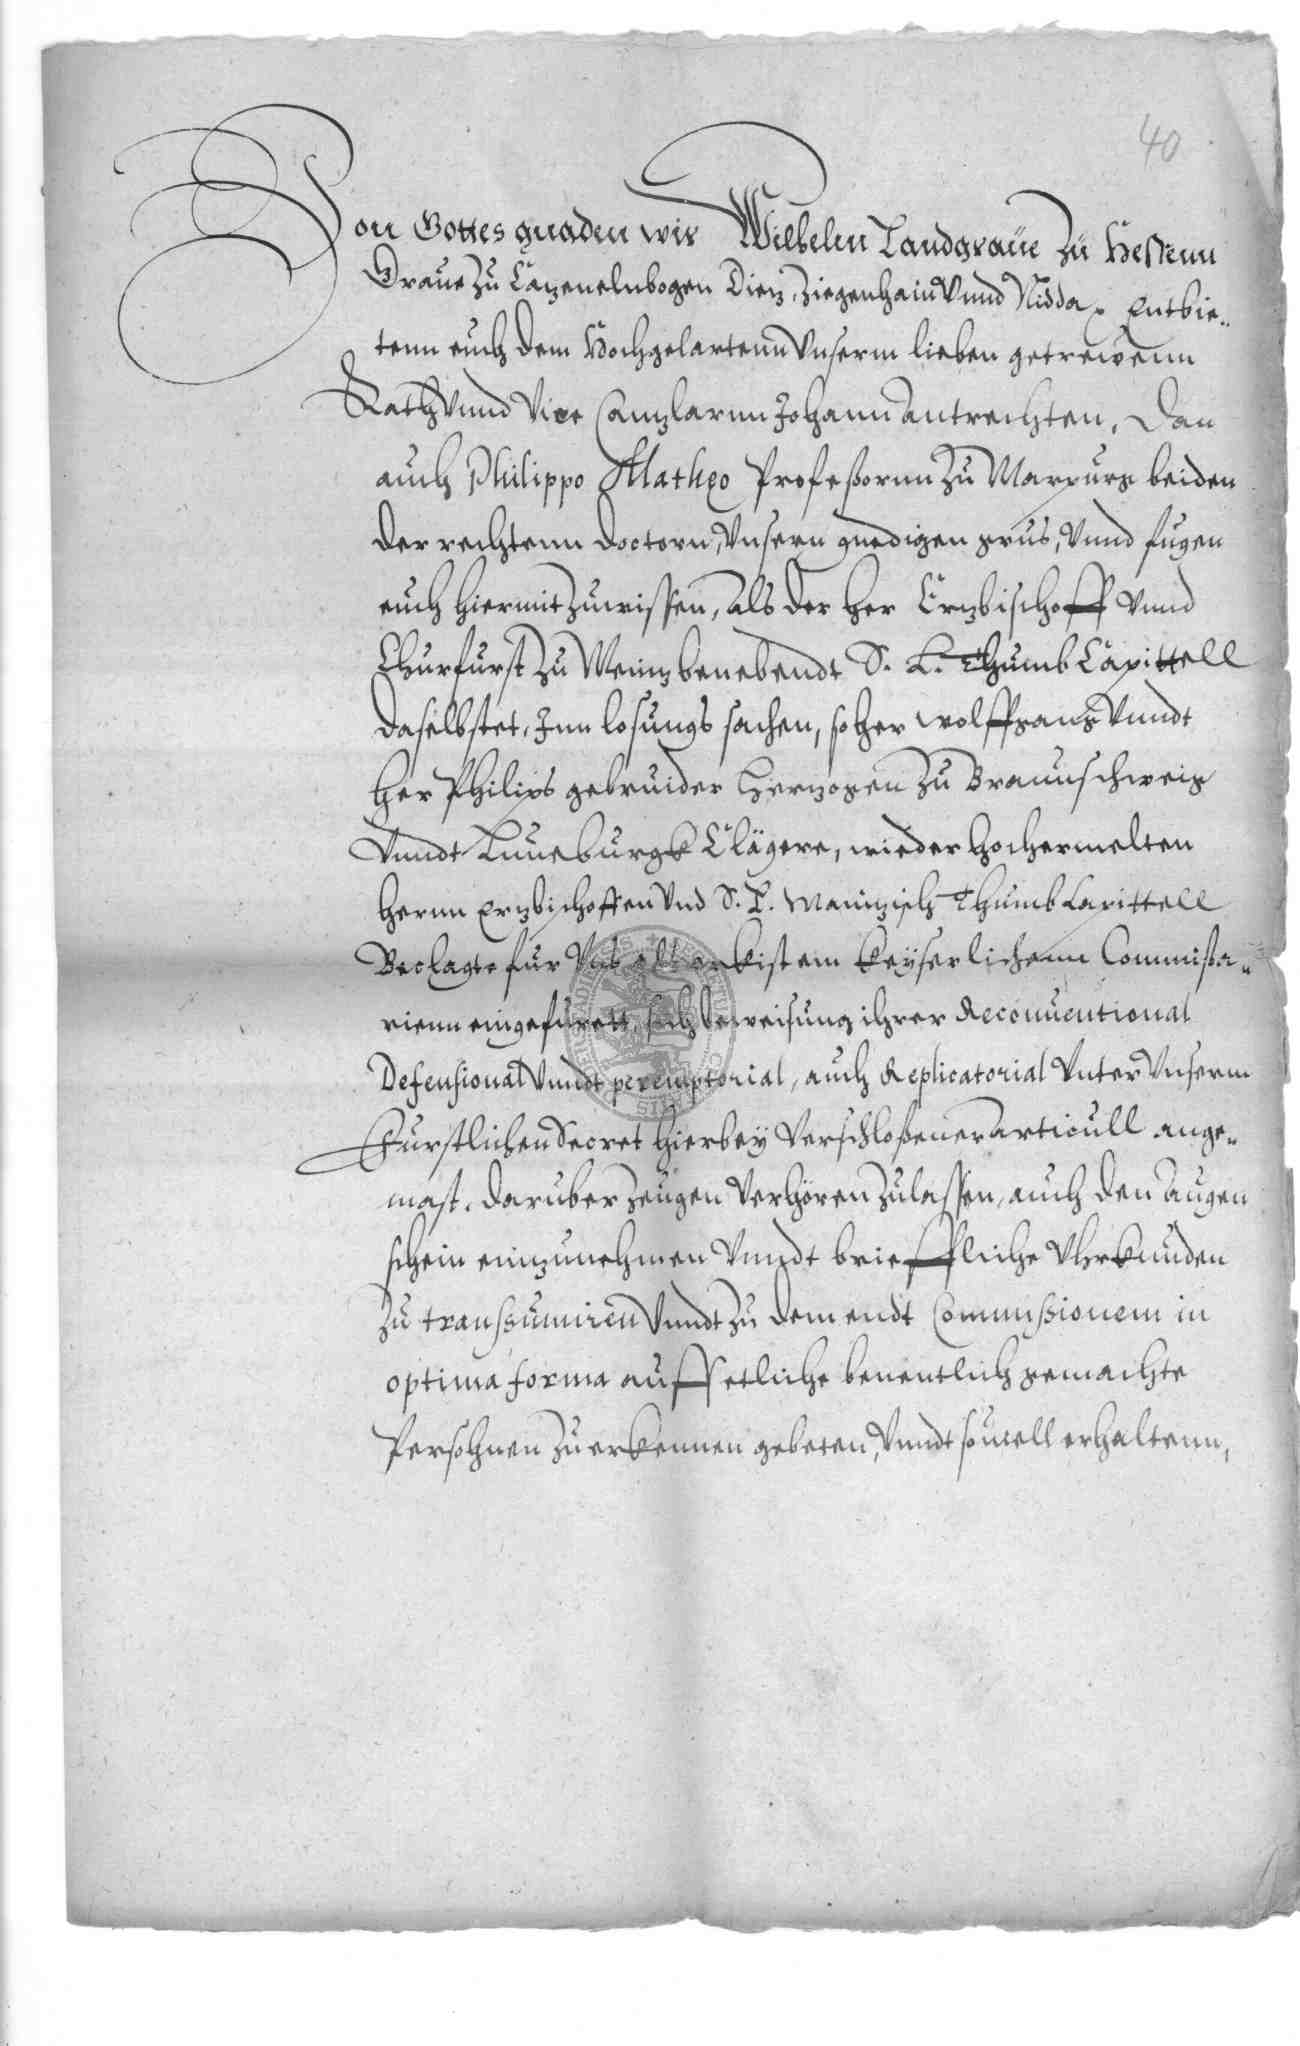 40
Von Gottes gnaden wir Wilhelm Landgraue zu Hessenn
Graue zu Cazenelnbogen Diez, Ziegenhain vnnd Nidda. Entbie-
tenn euch dem Hochgelartenn vnserm lieben getrewenn
Rath vnnd Vice Canzlarnn Johann Antrechten, Dan
auch Philippo Matheo Profeßornn zu Marpurg beiden
der rechtenn Doctorn, vnsern gnedigen grus, vnnd fugen
euch hiermit zuwissen, als der Her Erzbischoff vnnd
Churfurst zu Meinz benebendt S. L. Thumb Capittell
daselbstet, Inn losungs sachen, so her Wolffgang vnndt
Her Philips gebruider Herzogen zu Braunschweig
vnndt Luneburgk Clägere, wieder hochermelten
hernn Erzbischoffen vnd S. L. Mainzisch Thumb Capittell
Beclagte fur vns als erkistem Keyserlichenn Commißa-
rienn eingefurett, sich beweisung ihrer Reconuentional
Defensional vnndt peremptorial, auch Replicatorial vnter vnserm
Furstlichen Secret hierbey verschloßener articull ange-
mast, daruber zeugen verhören zulassen, auch den augen
schein einzunehmen vnndt brieffliche Vhrkunden
zu transsumiren vnndt zu dem endt Commißionem in
optima forma auff etliche benentlich gemachte
Persohnen zuerkennen gebeten, vnndt souiell erhaltenn,